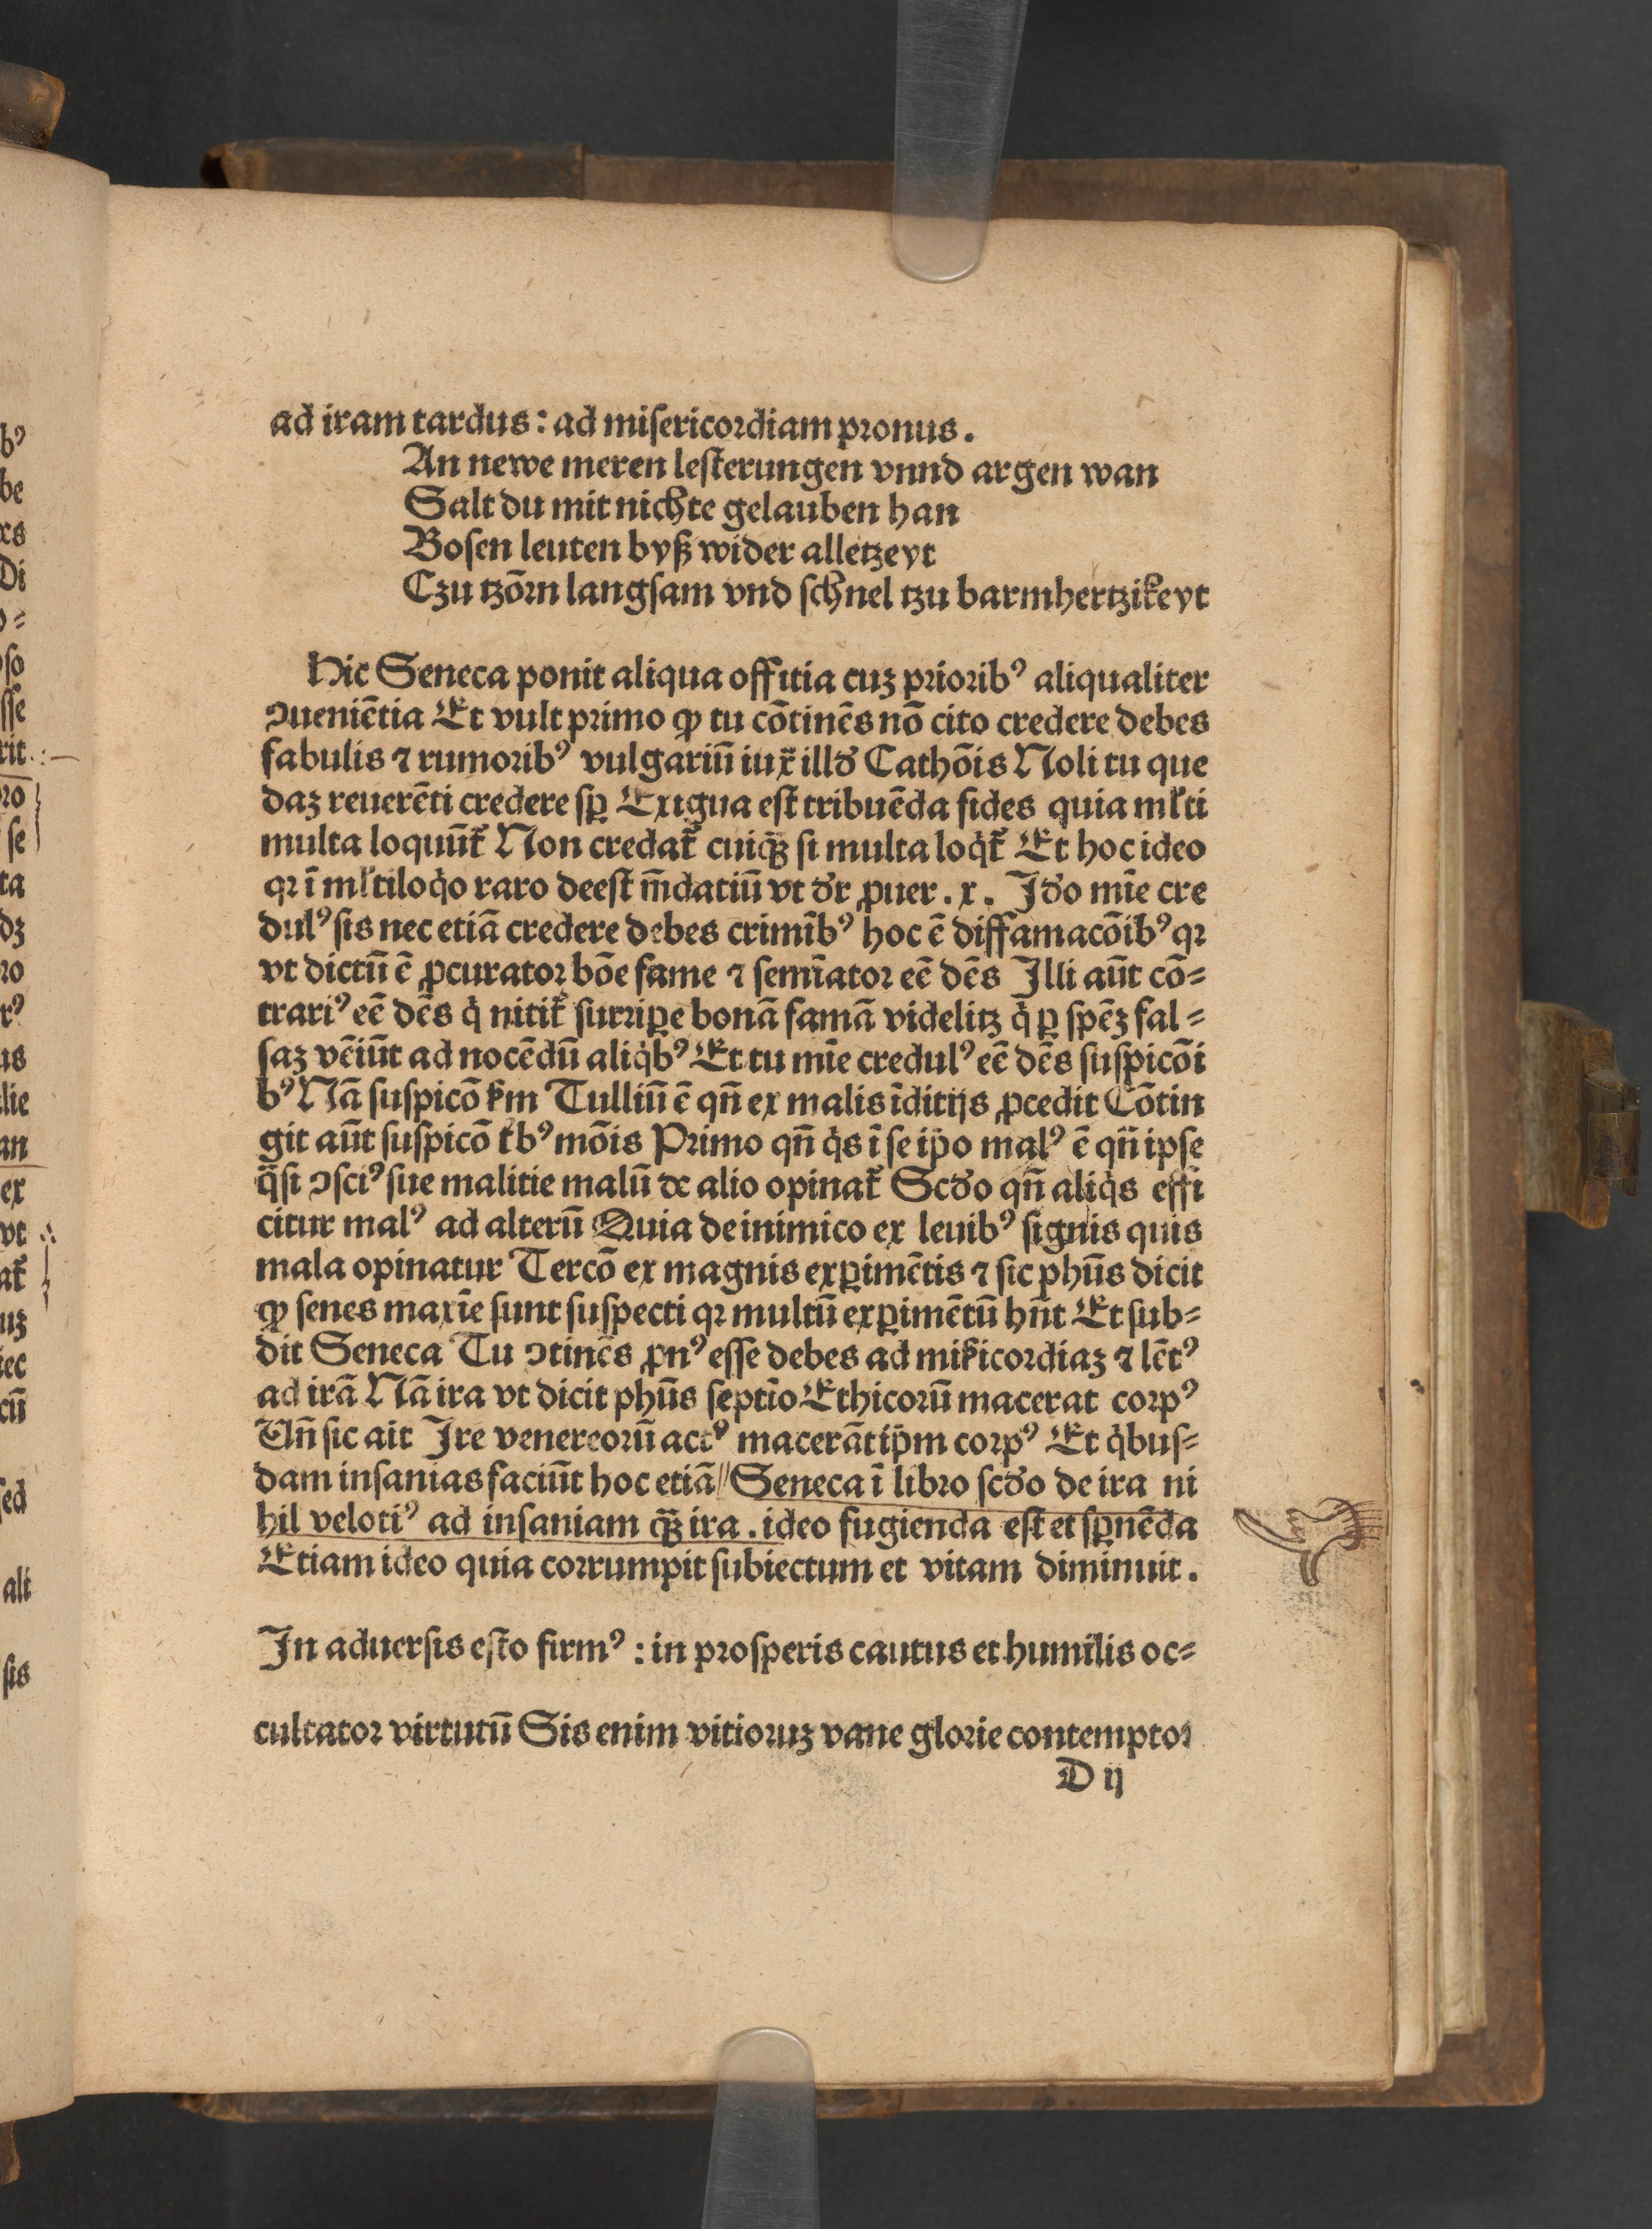 ad iram tardus: ad miſericordiam pronus.
An newe meren leſterungen vnnd argen wan
Salt du mit nichte gelauben han
Boſen leuten byß wider alletzeyt
Czu tzōrn langſam vnd ſchnel tzu barmhertzikeyt
Hic Seneca ponit aliqua offitia cuꝫ prioribꝰ aliqualiter
ↄueniētia Et vult primo ꝙ tu cōtinēs nō cito credere debes
fabulis ⁊ rumoribꝰ vulgariū iux̄ illđ Cathōis Noli tu que
daꝫ reuerēti credere ſꝑ Exigua eſt tribuēda fides quia ml̛ti
multa loquūt̛ Non credat̛ cuiqꝫ̄ ſi multa loq̇t̛ Et hoc ideo
qꝛ ī ml̛tiloq̇o raro deeſt m̄datiū vt đr ꝓuer. x. Jđo mīe cre
dulꝰ ſis nec etiā credere debes crimībꝰ hoc ē diffamacōibꝰ qꝛ
vt dictū ē ꝓcurator bōe fame ⁊ ſemīator eē dēs Illi aūt cō⸗
trariꝰ eē dēs q̇ nitit̛ ſurriꝑe bonā famā videlitꝫ q̇ ꝑ ſpēꝫ fal⸗
ſaꝫ vēiūt ad nocēdū aliq̇bꝰ Et tu mīe credulꝰ eē dēs ſuſpicōi
bꝰ Nā ſuſpicō ẜm Tulliū ē qn̄ ex malis īditijs ꝓcedit Cōtin
git aūt ſuſpicō t̛bꝰ mōis Primo qn̄ q̇s ī ſe ip̄o malꝰ ē qn̄ ipſe
q̄ſi ↄſciꝰ ſue malitie malū de alio opinat̛ Scđo qn̄ aliq̇s effi
citur malꝰ ad alterū Quia de inimico ex leuibꝰ ſignis quis
mala opinatur Tercō ex magnis exꝑimētis ⁊ ſic phūs dicit
ꝙ ſenes maxīe ſunt ſuſpecti qꝛ multū exꝑimētū hn̄t Et ſub⸗
dit Seneca Tu ↄtinēs ꝓnꝰ eſſe debes ad miẜicordiaꝫ ⁊ lētꝰ
ad irā Nā ira vt dicit phūs ſeptīo Ethicorū macerat corpꝰ
Un̄ ſic ait Ire venereorū actꝰ macerāt ip̄m corpꝰ Et q̇buſ⸗
dam inſanias faciūt hoc etiā Seneca ī libro ſcđo de ira ni
hil velotiꝰ ad inſaniam qꝫ̄ ira. ideo fugienda eſt et ſꝑnēda
Etiam ideo quia corrumpit ſubiectum et vitam diminuit.
In aduerſis eſto firmꝰ: in proſperis cautus et humilis oc⸗
cultator virtutū Sis enim vitioruꝫ vane glorie contemptor
D ij